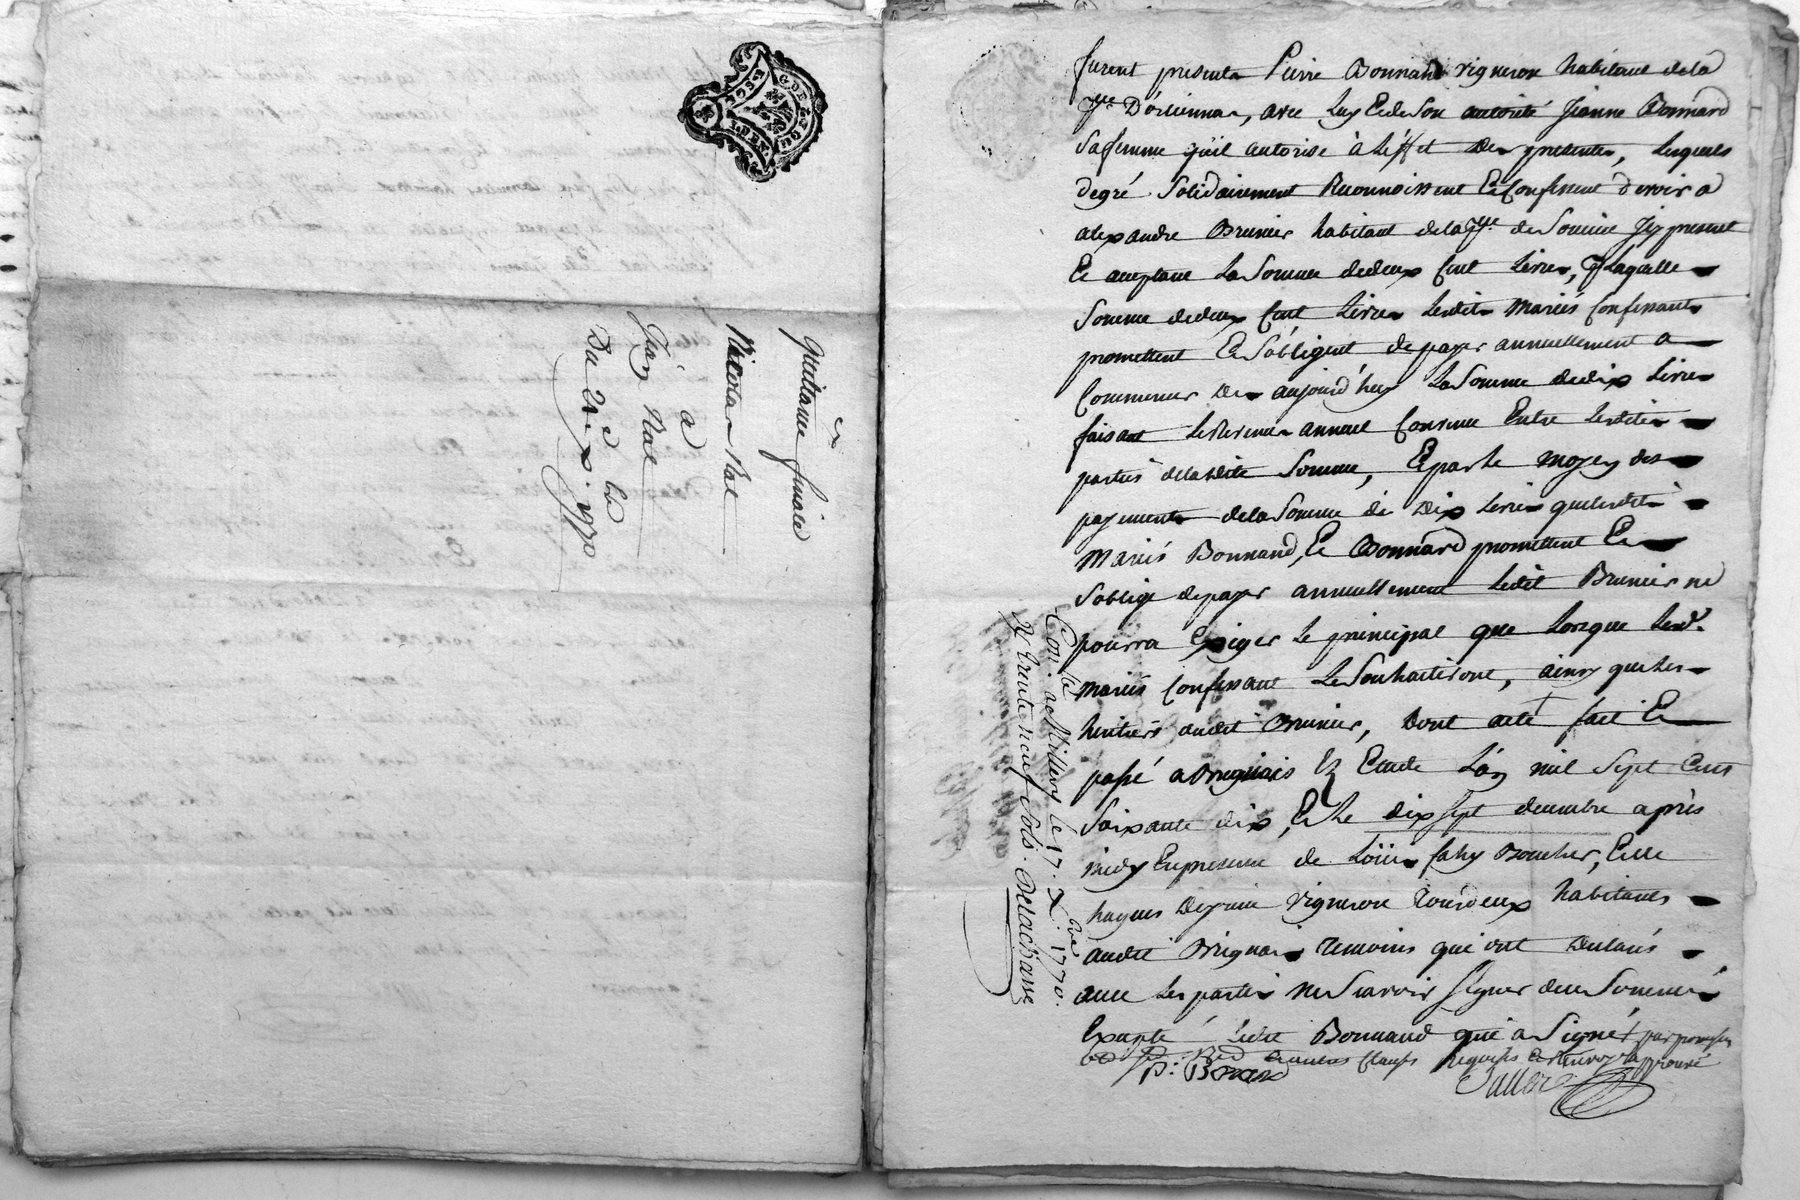 G. DE LYON
quittance finale
Nicolas Nal
a
Jean Nal
Du 1770
furent presents Pierre Bonnand vigneron habitant de la
psse D'orliennas, avec luy Et de Son autorité Jeanne Bonnard
Sa femme qu'il autorise à L'éffet Des presentes, Lesquels
de gré Solidairement Reconnoissent Et Confessent devoir a
alexandre Brunier habitant de la psse. de Soucieu Jcy present
Et acceptant La Somme de deux Cent Livres, Laquelle
Somme de deux Cent Livres Lesdits Mariés Confessants
promettent Et S'obligent de payer annuellement a
Commencer Des aujourd'huy La Somme de dix Livres
faisant Le Revenu annuel Convenu Entre Lesdites
parties de la ditte Somme, Et par le moyen des
payements de la Somme de Dix Livres que lesdits
Mariés Bonnand, Et Bonnard promettent Et
S'oblige de payer annuellement Ledit Brunier ne
pourra Exiger Le principal que Lorsque Lesd.
mariés Confessant Le Souhaiteront, ainsy que les
heritiers dudit Brunier, Dont acte + fait Et
passé a Brignais Ez Etude L'an mil Sept Cent
Soixante dix, Et Le dix sept decembre après
midy En presence de Loüis fahy Boucher, Et
hugues Depuis vigneron Tous deux habitants
audit Brignais Temoins qui ont Declarés
avec Les parties ne Scavoir Signer de ce Sommés
Excepté Ledit Bonnand qui a Signé + par promesses
et autres Clauses Requises Et Renvoy approuvé
P. Bonand
Con.lé a Millery le 17. Xbre 1770.
R. trente neuf Sols. Delachasse